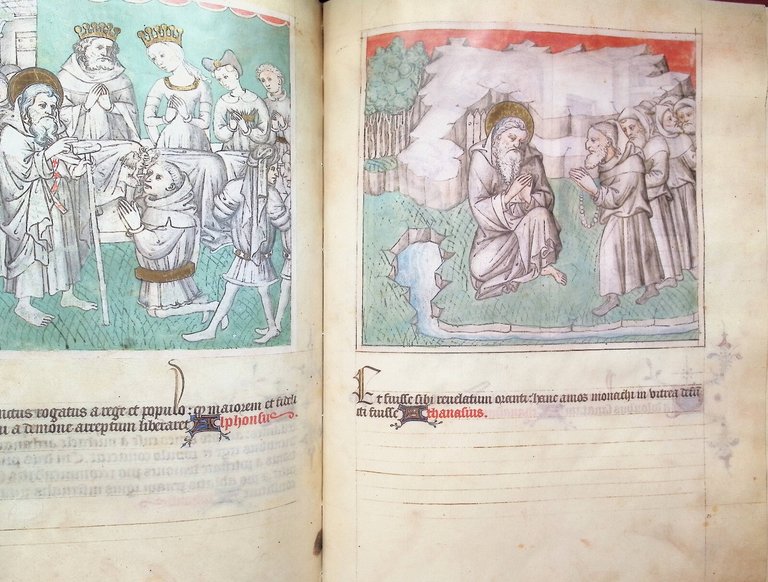 nctus rogatus a rege et populo: qz maiorem et fideli
u a demone arreptum liberaret Alphonsus.
Et fuisse sibi revelatum oranti: hanc amos monachi in vitrea
fuisse Athanasius.